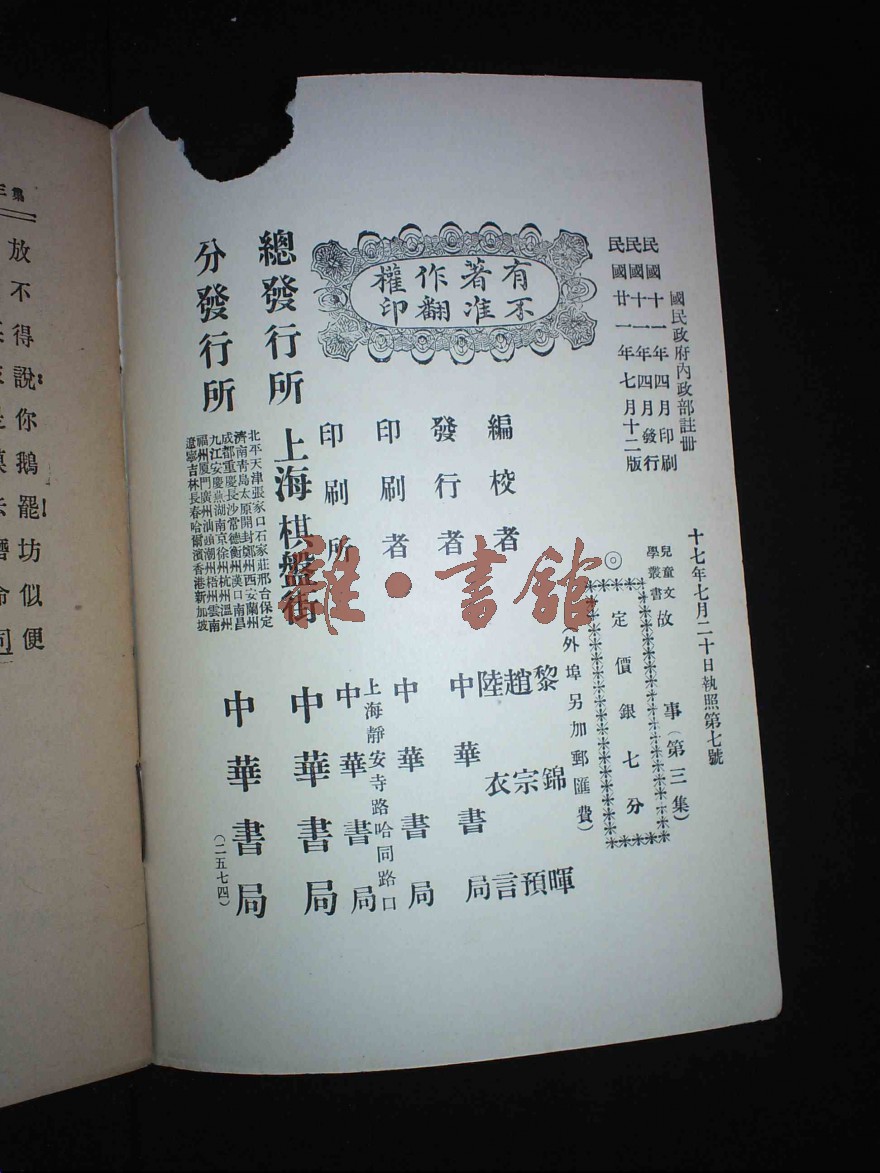 國民政府內政部註冊
十七年七月二十日執照第七號
民國十一年四月印刷
民國十一年四月發行
民國廿一年七月十二版
兒童文學叢書
故事(第三集)
◎
定價銀七分
(外埠另加郵匯費)
有著作權
不准翻印
編校者 黎錦暉 趙宗預 陸衣言
發行者 中華書局
印刷者 中華書局
印刷所 上海靜安寺路哈同路口 中華書局
總發行所 上海棋盤街 中華書局
分發行所
北平天津張家口石家莊邢台保定
濟南青島太原開封鄭州西安蘭州
成都重慶長沙常德衡州漢口南昌
九江安慶蕪湖南京徐州杭州溫州
福州廈門廣州汕頭潮州梧州雲南
遼寧吉林長春哈爾濱香港新加坡
中華書局
(二五七四)
雜·書館
三集
放不得
說:你鵝罷!坊似便